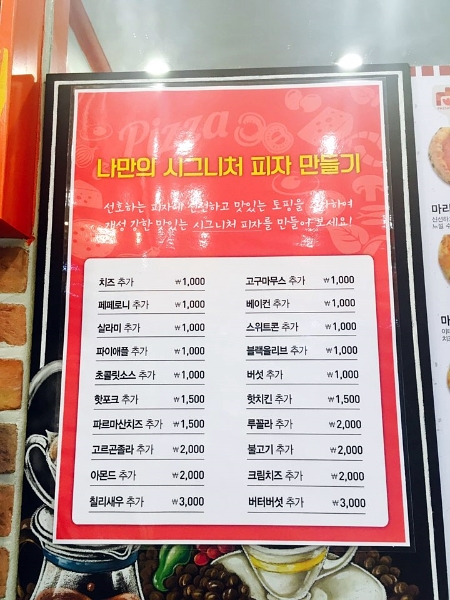 Pizza
나만의 시그니처 피자 만들기
선호하는 피자에 신선하고 맛있는 토핑을 추가하여
개성 강한 맛있는 시그니처 피자를 만들어 보세요!
치즈 추가 ₩1,000
고구마무스 추가 ₩1,000
페페로니 추가 ₩1,000
베이컨 추가 ₩1,000
살라미 추가 ₩1,000
스위트콘 추가 ₩1,000
파이애플 추가 ₩1,000
블랙올리브 추가 ₩1,000
초콜릿소스 추가 ₩1,000
버섯 추가 ₩1,000
핫포크 추가 ₩1,500
핫치킨 추가 ₩1,500
파르마산치즈 추가 ₩1,500
루꼴라 추가 ₩2,000
고르곤졸라 추가 ₩2,000
불고기 추가 ₩2,000
아몬드 추가 ₩2,000
크림치즈 추가 ₩2,000
칠리새우 추가 ₩3,000
버터버섯 추가 ₩3,000